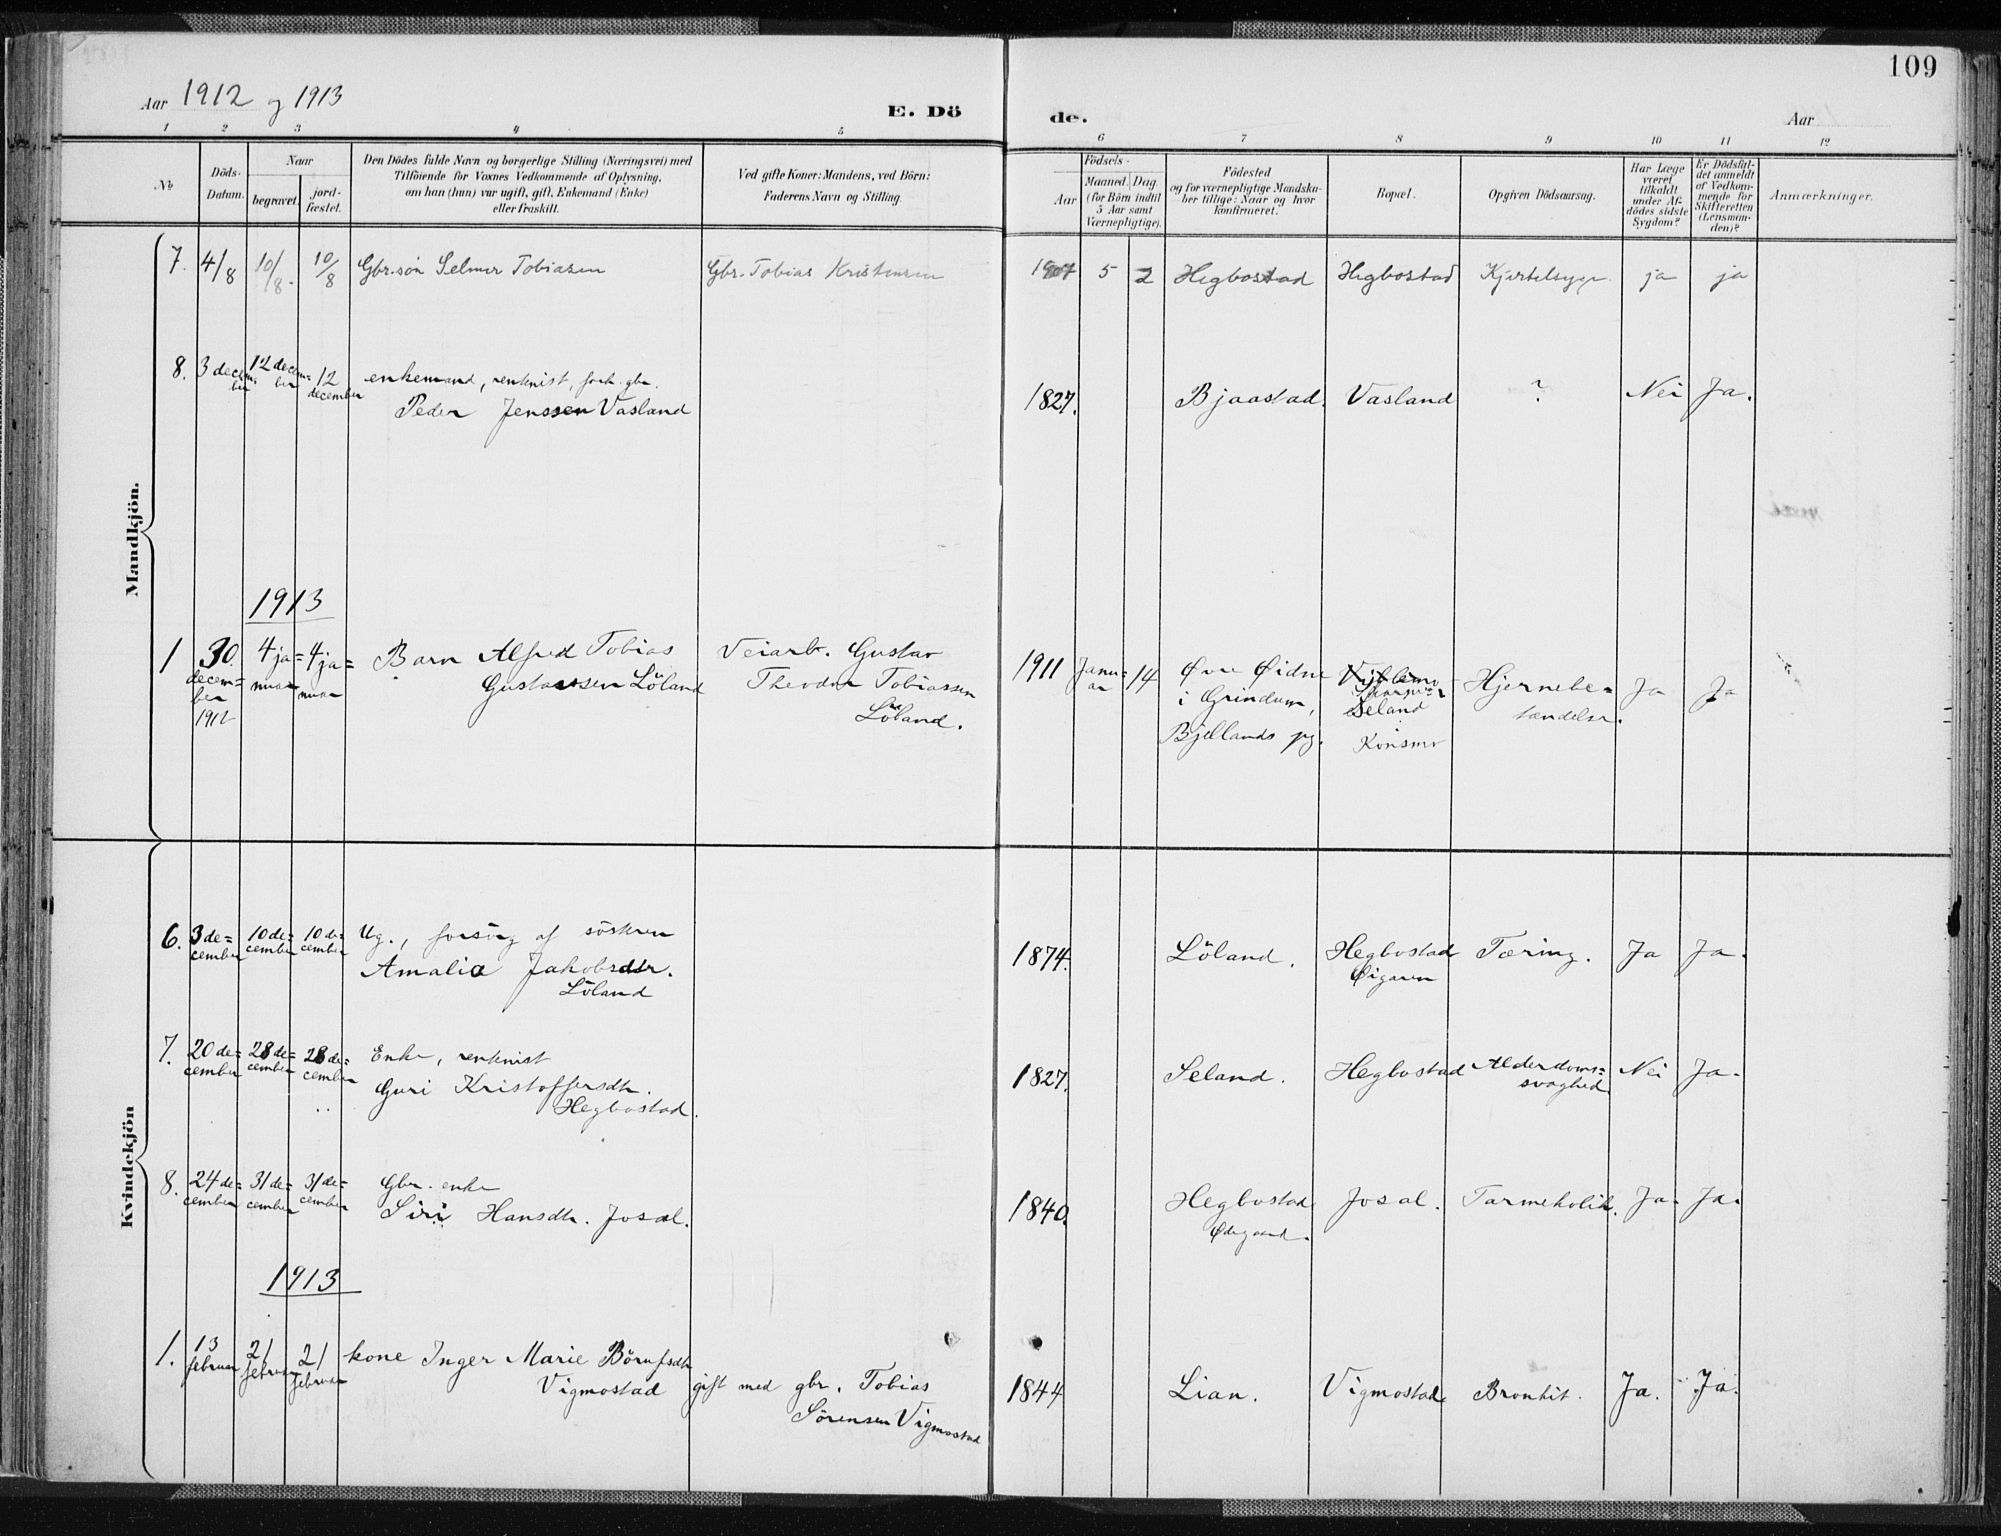 109
Aar 1912 og 1913
E. Dö de.
Aar
1 2 3 4 5 6 7 8 9 10 11 12
No
Döds-Datum.
Naar
begravet.
jord-fæstet.
Den Dödes fulde Navn og borgerlige Stilling (Næringsvei) med
Tilföiende for Voxnes Vedkommende af Oplysning,
om han (hun) var ugift, gift, Enkemand (Enke)
eller fraskilt.
Ved gifte Koner: Mandens, ved Börn:
Faderens Navn og Stilling.
Födsels-
Aar
Maaned. Dag.
(for Börn indtil
5 Aar samt
Værnepligtige).
Födested
og for værnepligtige Mandska-
ber tillige: Naar og hvor
konfirmeret.
Bopæl.
Opgiven Dödsaarsag.
Har Læge
været
tilkaldt
under Af-
dödes sidste
Sygdom?
Er Dödsfal-
det anmeldt
af Vedkom-
mende for
Skifteretten
(Lensman-
den)?
Anmærkninger.
Mandkjön.
7. 4/8 10/8. 10/8 Gbr.sön Selmer Tobiasen Gbr. Tobias Kristensen 1907 5 2 Hegbostad Hegbostad Kjertelsyge. ja ja
8. 3 decem=ber 12 decem=ber 12 december enkemand, renknist, forh. gbr.
Peder Jenssen Vasland 1827. Bjaastad. Vasland ? Nei Ja.
1913
1 30. decem=ber 1912 4 ja=nuar 4 ja=nuar Barn Alfred Tobias
Gustavsen Löland
Veiarb. Gustav
Theodor Tobiassen
Löland.
1911 Janu=ar 14 Øvre Øidne
i Grindum,
Bjellands pg.
Seland
Konsmo
Hjernebe=
tændelse.
Ja Ja
Kvindekjön
6. 3 de=cember 10 de=cember 10 de=cember Ug., forsörg af söskren
Amalia Jakobsdtr.
Löland
1874. Löland. Hegbostad
Øigaren
Tæring. Ja Ja.
7. 20 de=cember 28 de=cember 28 de=cember Enke, renknist
Guri Kristoffersdtr.
Hegbostad.
1827. Seland. Hegbostad Alderdoms=
svaghed. Nei Ja.
8. 24 de=cember 31 de=cember 31 de=cember Gbr. enke
Siri Hansdtr. Josal.
1840. Hegbostad
Ødegaard.
Josal. Tarmekolik. Ja. Ja.
1913
1. 13 februar 21 februar 21 februar kone Inger Marie Börufsdtr
Vigmostad gift med gbr. Tobias
Sörensen Vigmostad
1844 Lian. Vigmostad Bronkit. Ja. Ja.